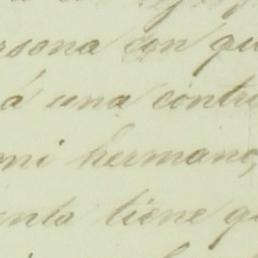 rsona con qu
á una contr
mi hermano,
ento tiene q